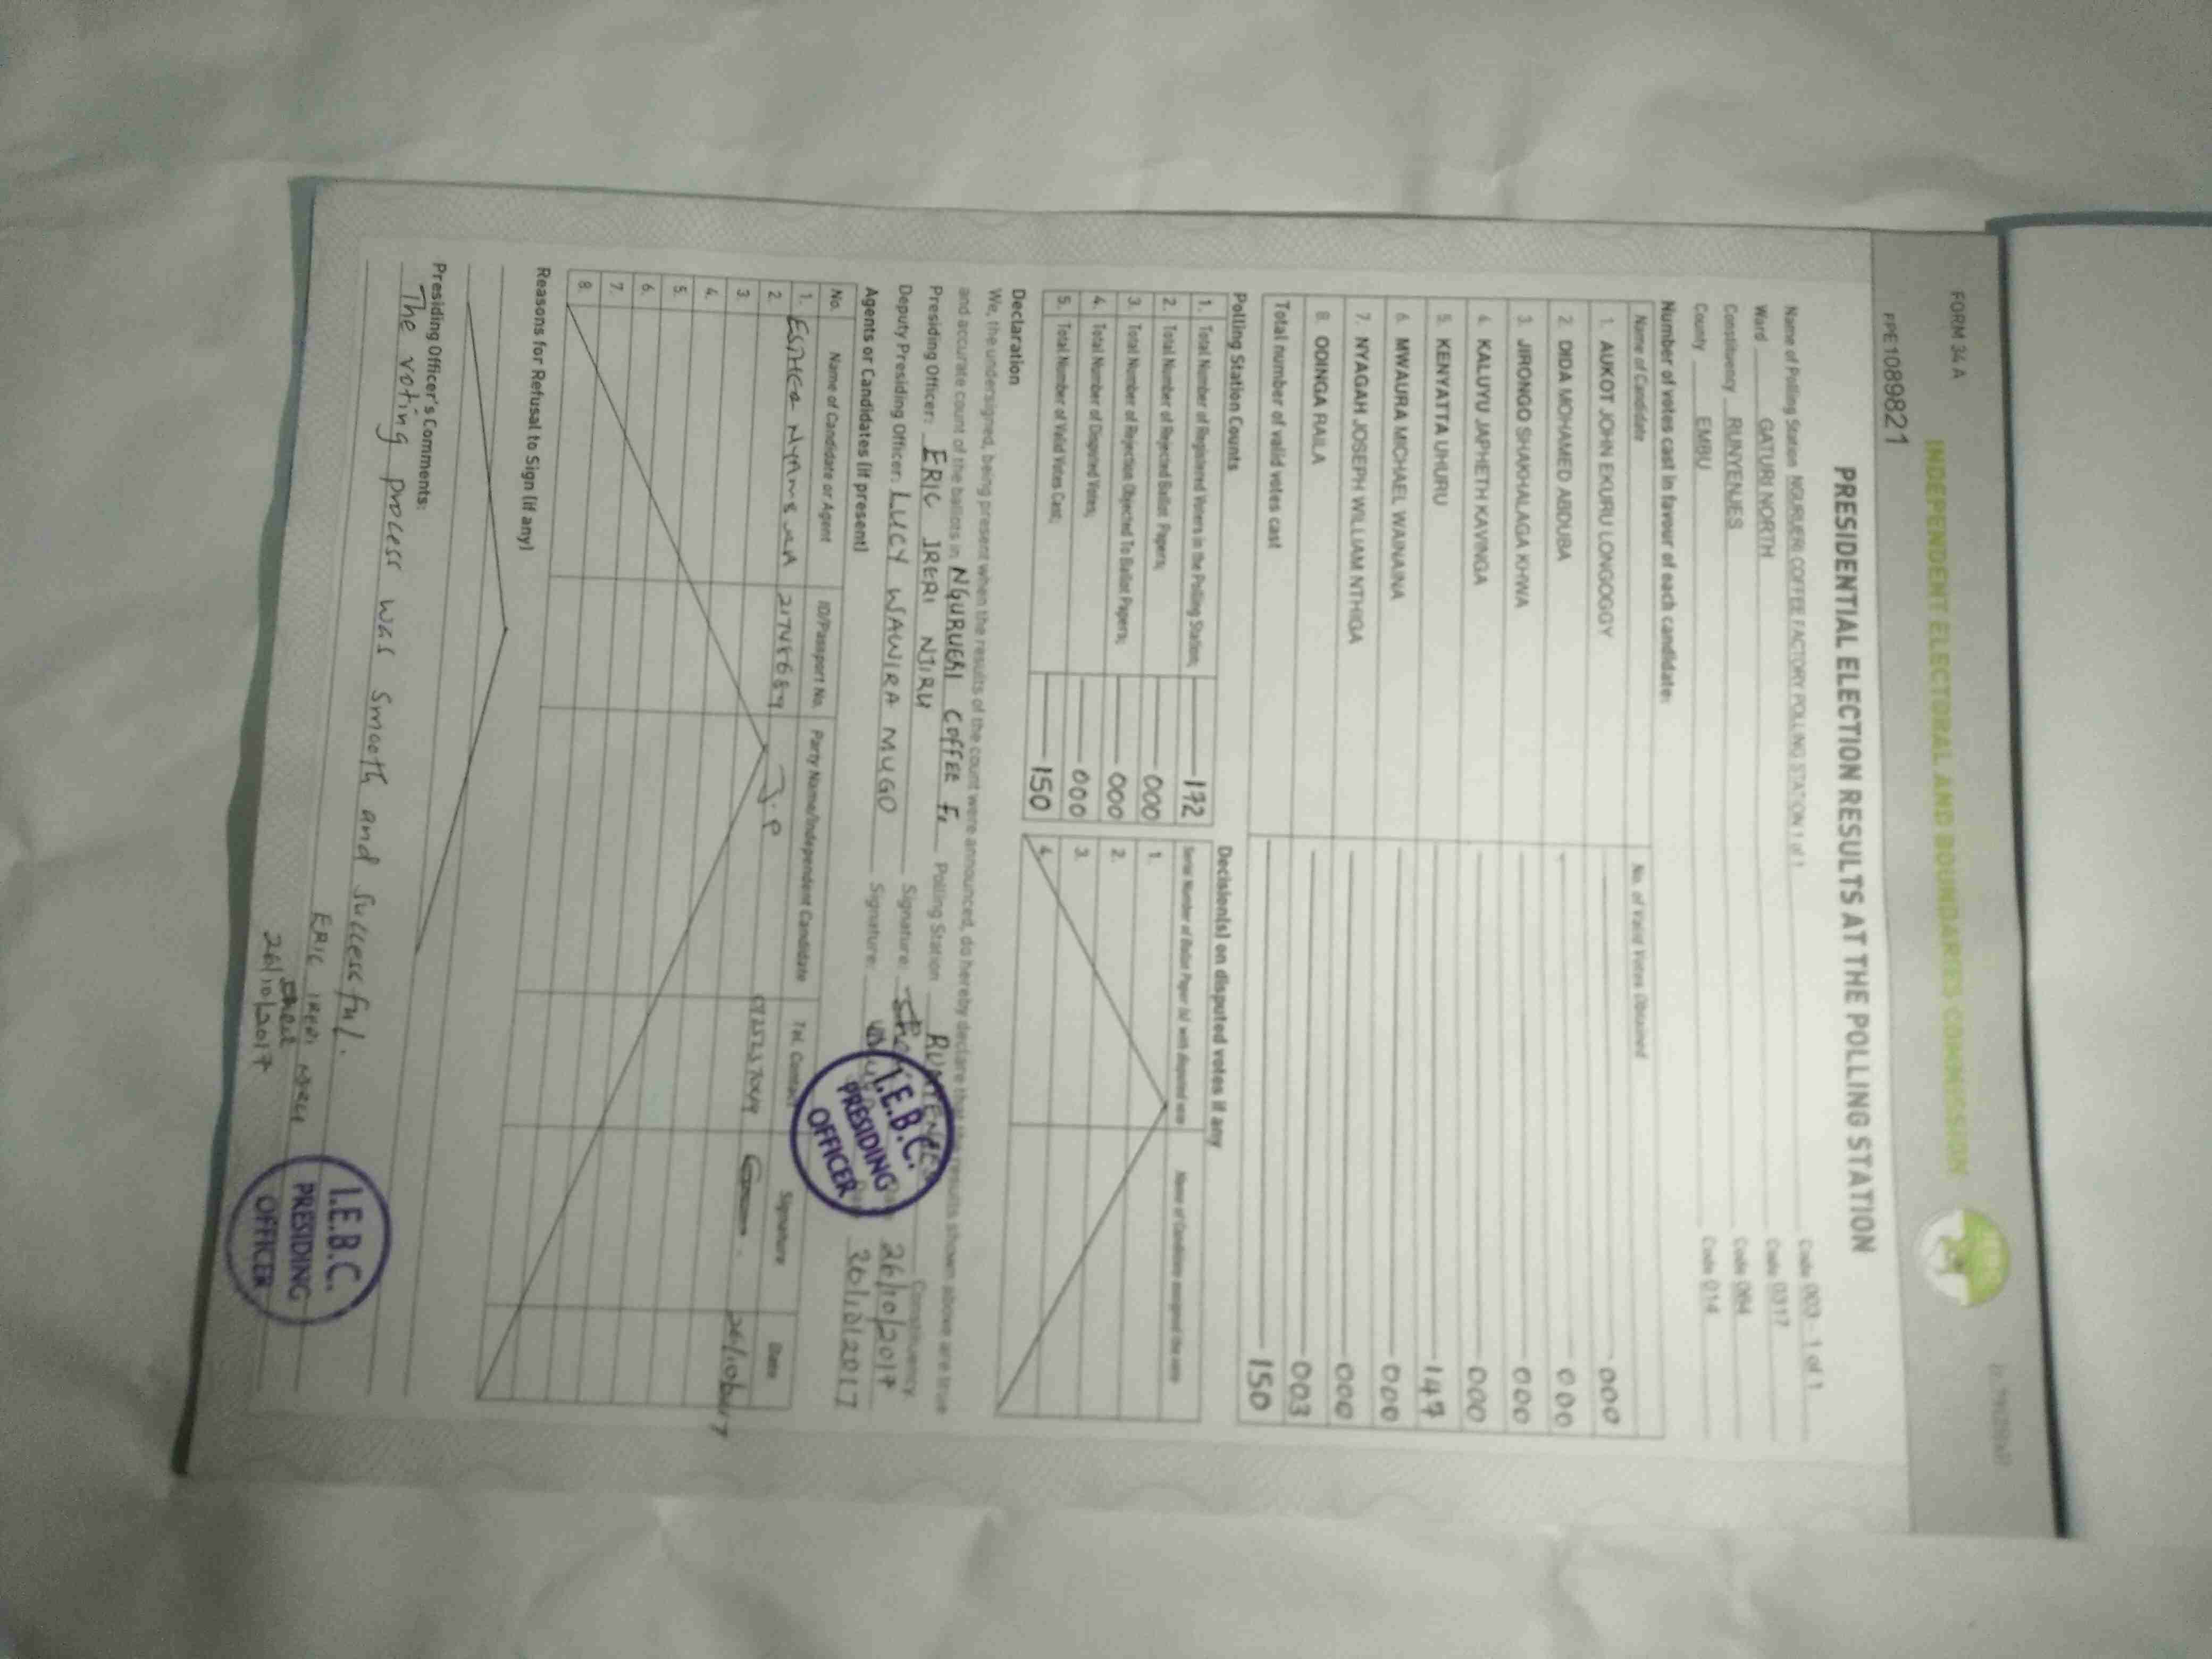 FORM 34 A
INDEPENDENT ELECTORAL AND BOUNDARIES COMMISSION
IEBC
PPE1089821
PRESIDENTIAL ELECTION RESULTS AT THE POLLING STATION
Name of Polling Station NGURUERI COFFEE FACTORY POLLING STATION 1 of 1 Code 003 - 1 of 1
Ward GATURI NORTH Code 0317
Constituency RUNYENJES Code 064
County EMBU Code 014
Number of votes cast in favour of each candidate:
Name of Candidate No. of Valid Votes Obtained
1. AUKOT JOHN EKURU LONGOGGY 000
2. DIDA MOHAMED ABDUBA 000
3. JIRONGO SHAKHALAGA KHWA 000
4. KALUYU JAPHETH KAVINGA 000
5. KENYATTA UHURU 147
6. MWAURA MICHAEL WAINAINA 000
7. NYAGAH JOSEPH WILLIAM NTHIGA 000
8. ODINGA RAILA 003
Total number of valid votes cast 150
Polling Station Counts
1. Total Number of Registered Voters in the Polling Station; 172
2. Total Number of Rejected Ballot Papers; 000
3. Total Number of Rejection Objected To Ballot Papers; 000
4. Total Number of Disputed Votes; 000
5. Total Number of Valid Votes Cast; 150
Decision(s) on disputed votes if any
Serial Number of Ballot Paper (s) with disputed vote Name of Candidate assigned the vote
1.
2.
3.
4.
Declaration
We, the undersigned, being present when the results of the count were announced, do hereby declare that the results shown above are true
and accurate count of the ballots in NGURUERI COFFEE F. Polling Station RUNYENJES Constituency
Presiding Officer: ERIC IRERI NJIRU Signature: 26/10/2017
Deputy Presiding Officer: LUCY WAWIRA MUGO Signature: 26/10/2017
I.E.B.C.
PRESIDING
OFFICER
Agents or Candidates (if present)
No. Name of Candidate or Agent ID/Passport No. Party Name/Independent Candidate Tel. Contact Signature Date
1. J.P 26/10/2017
2.
3.
4.
5.
6.
7.
8.
Reasons for Refusal to Sign (if any)
Presiding Officer's Comments:
The voting process was smooth and successful.
ERIC IRERI NJIRU
26/10/2017
I.E.B.C.
PRESIDING
OFFICER